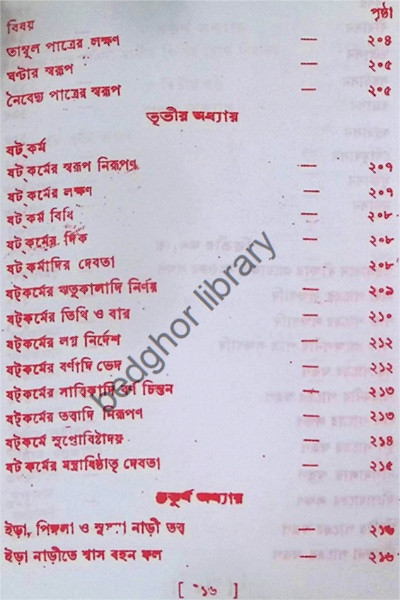 বিষয় পৃষ্ঠা
তাম্বুল পাত্রের লক্ষণ — ২০৪
ঘণ্টার স্বরূপ — ২০৫
নৈবেদ্য পাত্রের স্বরূপ — ২০৫
তৃতীয় অধ্যায়
ষট্ কর্ম
ষট্ কর্মের স্বরূপ নিরূপণ — ২০৭
ষট্ কর্মের লক্ষণ — ২০৭
ষট্ কর্ম বিধি — ২০৮
ষট্ কর্মের দিক — ২০৮
ষট্ কর্মাদির দেবতা — ২০৮
ষট্কর্মের ঋতুকালাদি নির্ণয় — ২০৯
ষট্কর্মের তিথি ও বার — ২১০
ষট্কর্মের লগ্ন নির্দেশ — ২১২
ষট্কর্মের বর্ণাদি ভেদ — ২১২
ষট্কর্মের সাত্ত্বিকাদি বর্ণ চিন্তন — ২১৩
ষট্কর্মের তত্বাদি নিরূপণ — ২১৩
ষট্কর্মে সুপ্তোবিষ্টাদয় — ২১৪
ষট কর্মের মন্ত্রাধিষ্ঠাতৃ দেবতা — ২১৫
চতুর্থ অধ্যায়
ইড়া, পিঙ্গলা ও সুষুম্না নাড়ী তত্ব — ২১৬
ইড়া নাড়ীতে শ্বাস বহন ফল — ২১৬
[ ১৬ ]
bedghor library